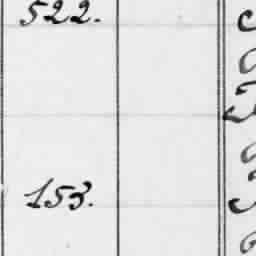 522.
153.